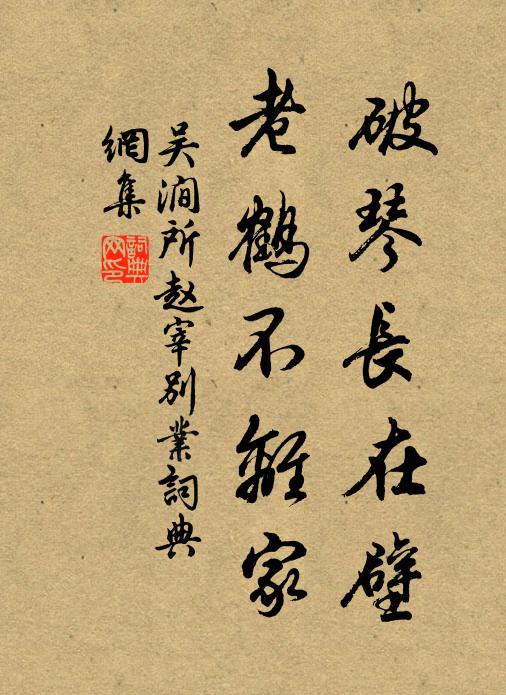 破琴長在壁
老鶴不離家
吴澗所赵宰别業詞典
網集
詞典
网印